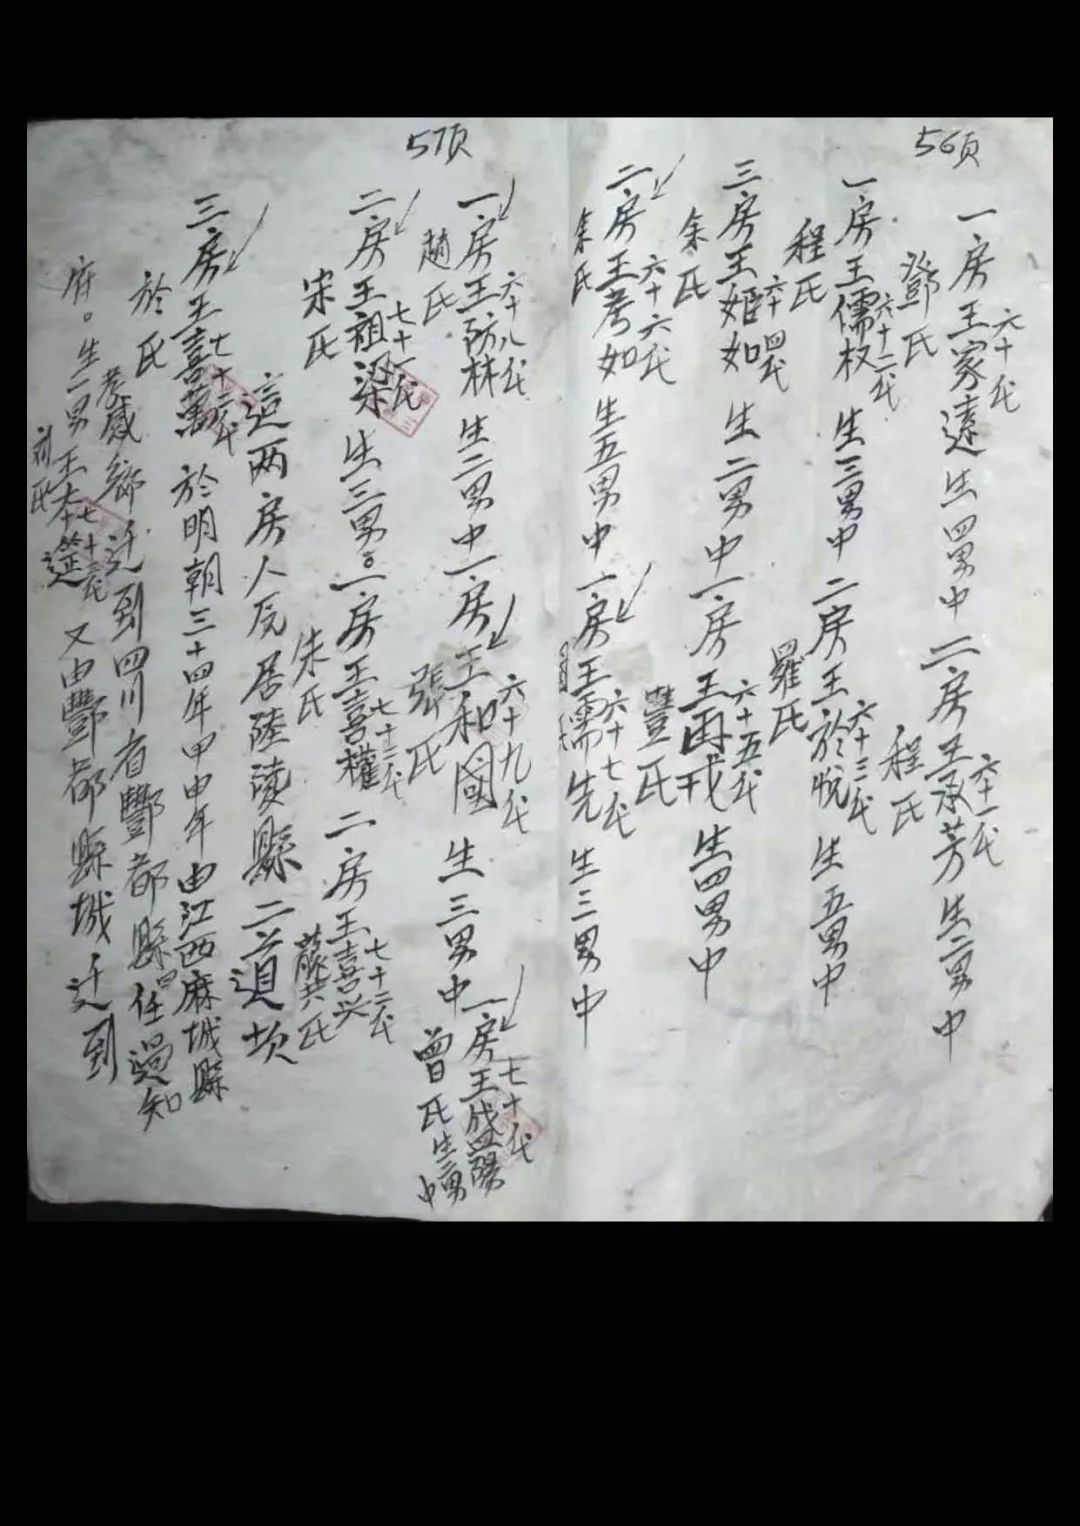 56页
一房王家遠六十代生四男中二房王承芳六十一代生二男中
鄧氏
程氏
一房王儒权六十二代生三男中二房王於悦六十三代生五男中
程氏
羅氏
三房王姬如六十四代生二男中一房王再戎六十五代生四男中
余氏
豐氏
二房王考如六十六代生五男中一房王儒先六十七代生三男中
余氏
57页
一房王防林六十八代生二男中一房王和國六十九代生三男中一房王盛陽七十代
趙氏
張氏
曾氏生三男中
二房王祖梁七十一代生三男。一房王喜權七十二代二房王喜兴七十二代
宋氏
朱氏
氏
這两房人反居陸陵縣二
三房王喜萬七十二代於明朝三十四年甲申年由江西麻城縣
於氏
孝感鄉迁到四川省酆都縣任過知
府。生一男王本筵七十三代又由酆都縣城迁到
刘氏